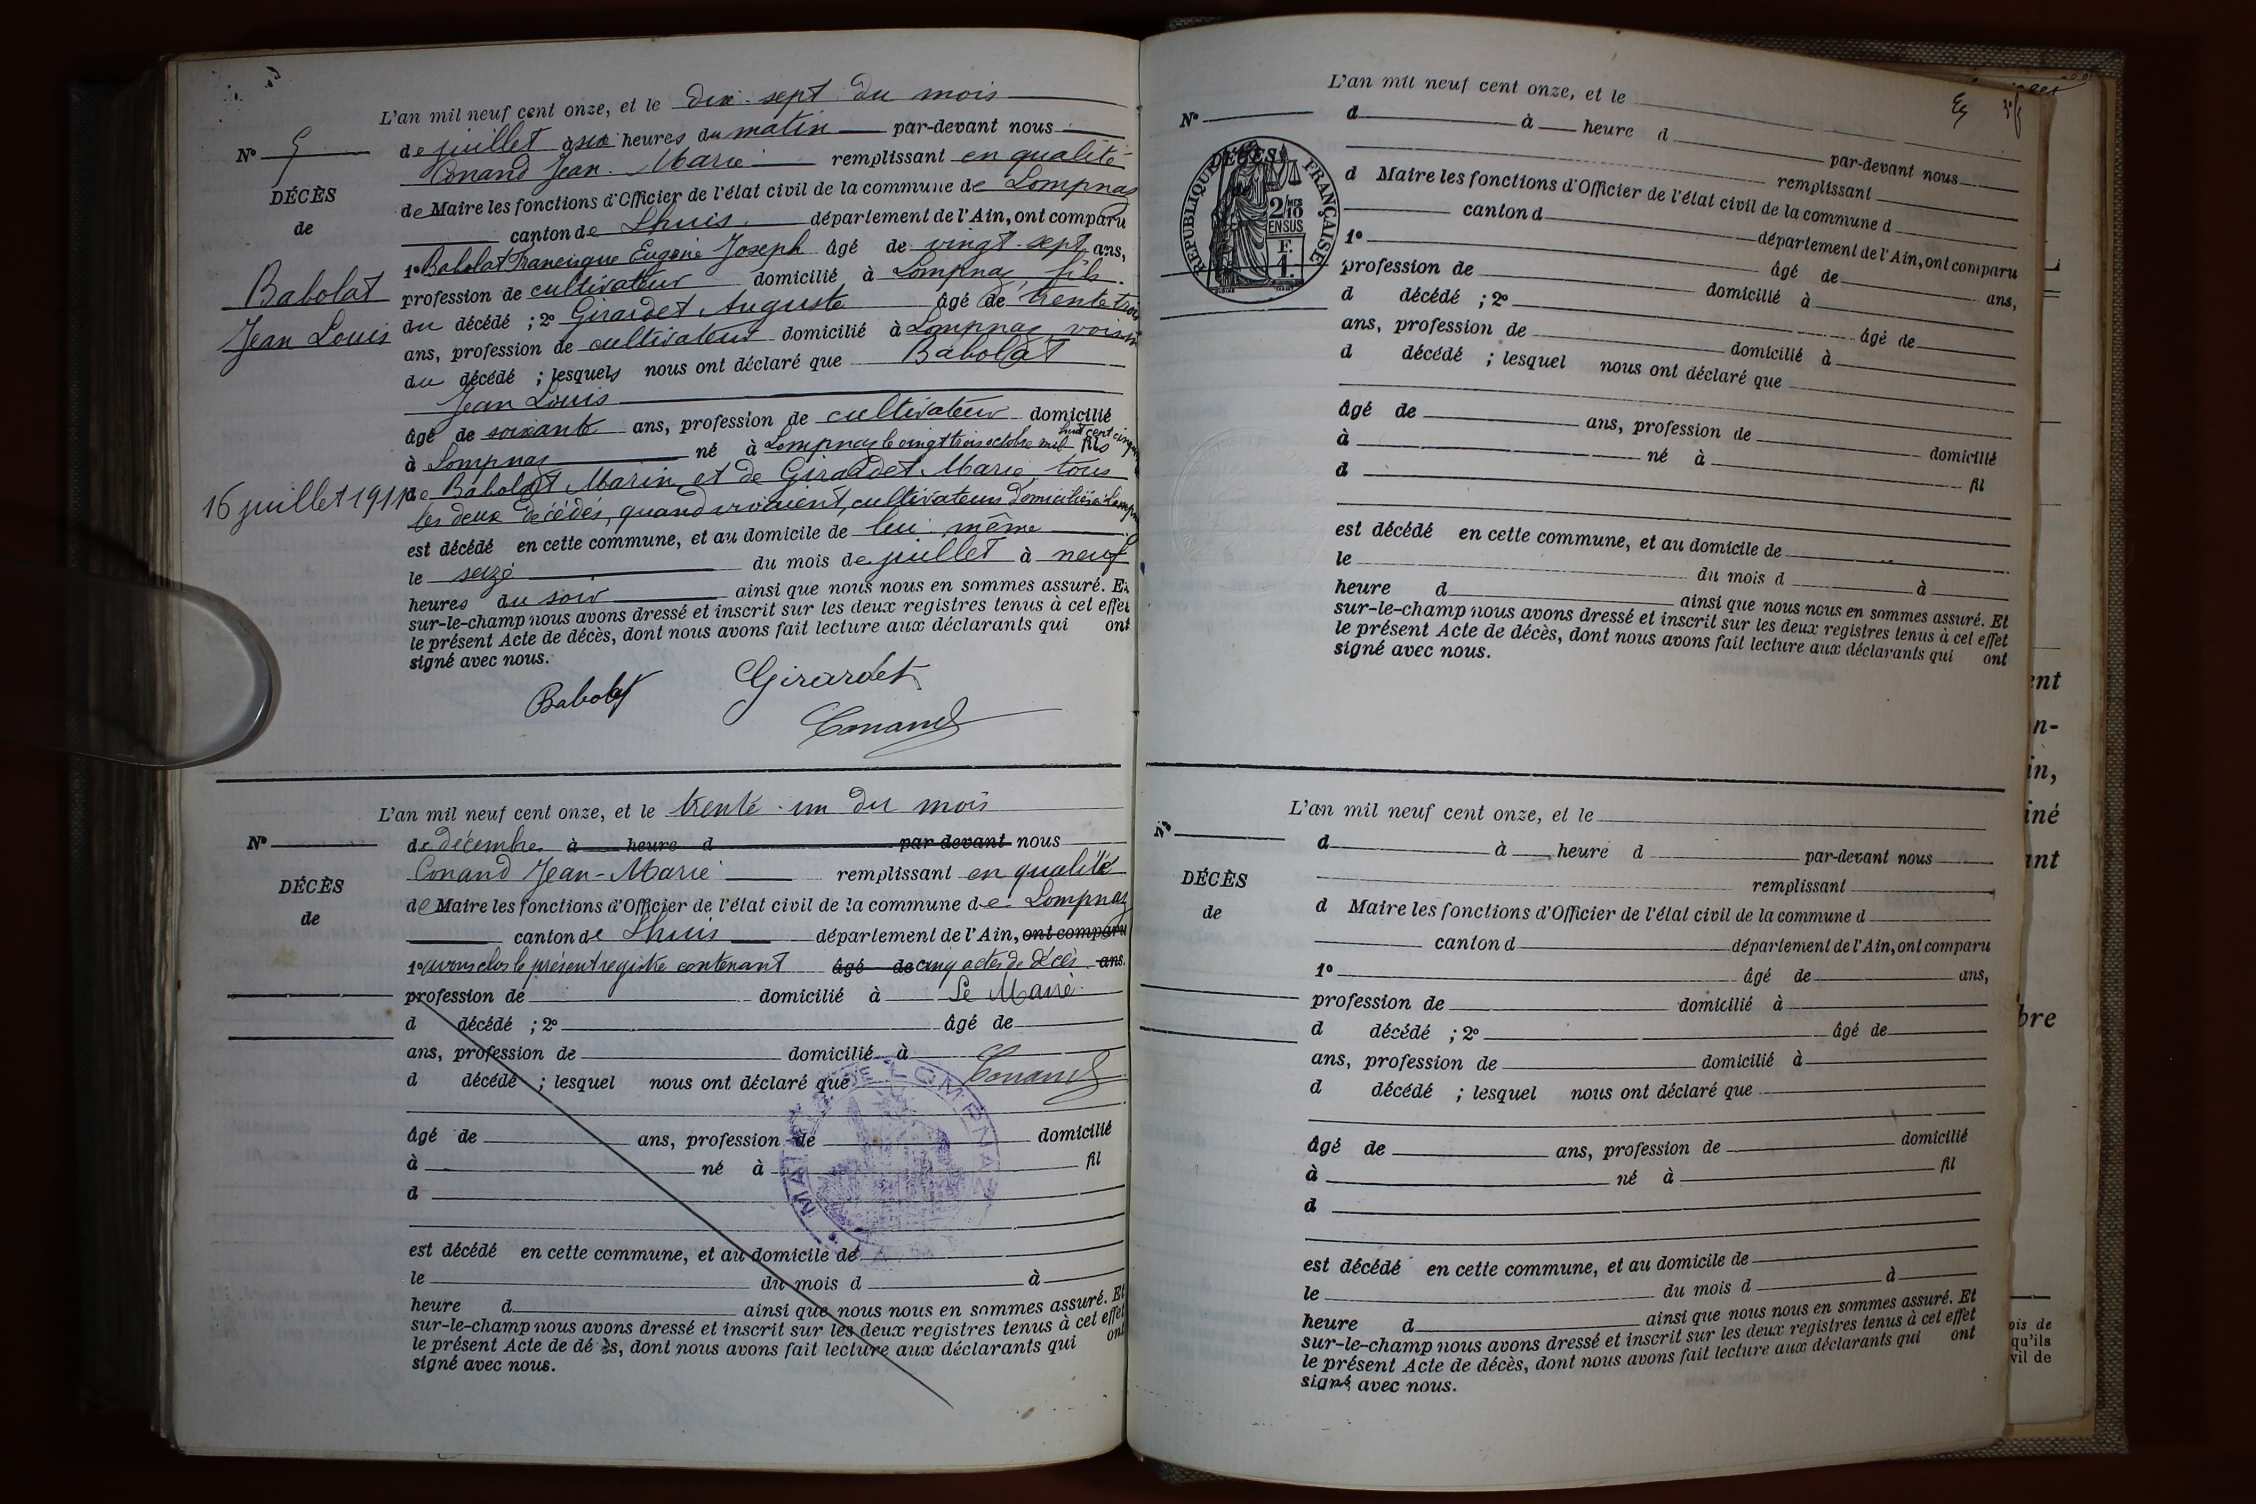 L'an mil neuf cent onze, et le dix-sept du mois
Nº 5
de juillet à six heures du matin par-devant nous
Conand Jean-Marie remplissant en qualité
DÉCÈS
de Maire les fonctions d'Officier de l'état civil de la commune de Lompnaz
de
canton de Lhuis département de l'Ain, ont comparu
1º Babolat Francisque Eugène Joseph âgé de vingt-sept ans,
Babolat
profession de cultivateur domicilié à Lompnaz fils
Jean Louis
du décédé ; 2º Girardet Auguste âgé de trente trois
ans, profession de cultivateur domicilié à Lompnaz voisin
du décédé ; lesquels nous ont déclaré que Babolat
Jean Louis
âgé de soixante ans, profession de cultivateur domicilié
à Lompnaz né à Lompnaz le vingt trois octobre mil huit cent fils
16 juillet 1911
de Babolat Marin et de Girardet Marie tous
les deux décédés, quand vivaient, cultivateurs domiciliés à
est décédé en cette commune, et au domicile de lui-même
le seize du mois de juillet à neuf
heures du soir ainsi que nous nous en sommes assuré. Et
sur-le-champ nous avons dressé et inscrit sur les deux registres tenus à cet effet
le présent Acte de décès, dont nous avons fait lecture aux déclarants qui ont
signé avec nous.
Babolat Girardet
Conand
L'an mil neuf cent onze, et le trente-un du mois
Nº
de décembre à heure d par-devant nous
Conand Jean-Marie remplissant en qualité
DÉCÈS
de Maire les fonctions d'Officier de l'état civil de la commune de Lompnaz
de
canton de Lhuis département de l'Ain, ont comparu
1º avons clos le présent registre contenant âgé de cinq actes de décès ans.
profession de domicilié à Le Maire
d décédé ; 2º âgé de
ans, profession de domicilié à
Conand
d décédé ; lesquel nous ont déclaré que
MAIRIE DE LOMPNAZ
âgé de ans, profession de domicilié
à né à fil
d
est décédé en cette commune, et au domicile de
le du mois d à
heure d ainsi que nous nous en sommes assuré. Et
sur-le-champ nous avons dressé et inscrit sur les deux registres tenus à cet effet
le présent Acte de dé ès, dont nous avons fait lecture aux déclarants qui ont
signé avec nous.
L'an mil neuf cent onze, et le
Nº
d à heure d par-devant nous
remplissant
DÉCÈS
RÉPUBLIQUE FRANÇAISE
2/10 EN SUS
F. 1.
d Maire les fonctions d'Officier de l'état civil de la commune d
canton d département de l'Ain, ont comparu
1º âgé de ans,
profession de domicilié à
d décédé ; 2º âgé de
ans, profession de domicilié à
d décédé ; lesquel nous ont déclaré que
âgé de ans, profession de domicilié
à né à fil
d
est décédé en cette commune, et au domicile de
le du mois d à
heure d ainsi que nous nous en sommes assuré. Et
sur-le-champ nous avons dressé et inscrit sur les deux registres tenus à cet effet
le présent Acte de décès, dont nous avons fait lecture aux déclarants qui ont
signé avec nous.
L'an mil neuf cent onze, et le
Nº
d à heure d par-devant nous
remplissant
DÉCÈS
d Maire les fonctions d'Officier de l'état civil de la commune d
de
canton d département de l'Ain, ont comparu
1º âgé de ans,
profession de domicilié à
d décédé ; 2º âgé de
ans, profession de domicilié à
d décédé ; lesquel nous ont déclaré que
âgé de ans, profession de domicilié
à né à fil
d
est décédé en cette commune, et au domicile de
le du mois d à
heure d ainsi que nous nous en sommes assuré. Et
sur-le-champ nous avons dressé et inscrit sur les deux registres tenus à cet effet
le présent Acte de décès, dont nous avons fait lecture aux déclarants qui ont
signé avec nous.
ent
n-
in,
iné
ant
bre
ois de
qu'ils
vil de